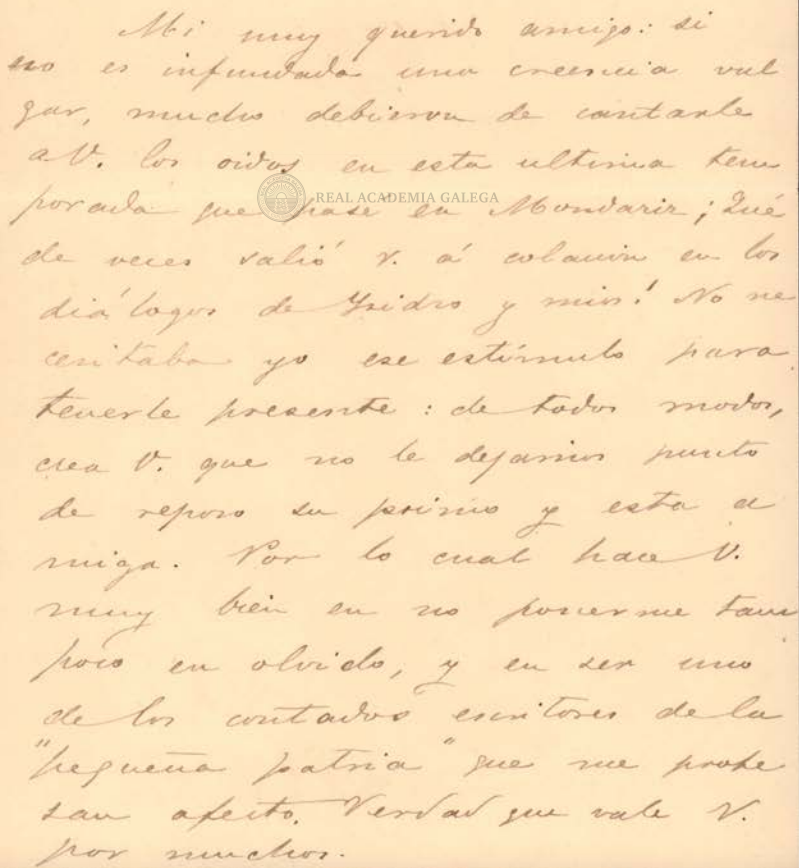 Mi muy querido amigo: si
no es infundada una creencia vul
gar, mucho debieron de cantarle
a V. los oidos en esta ultima tem
porada que pase en Mondariz; Qué
REAL ACADEMIA GALEGA
de veces salió V. á colacion en los
diálogos de Ysidro y mios! No ne
cesitaba yo ese estímulo para
tenerle presente: de todos modos,
crea V. que no le dejamos punto
de reposo su primo y esta a
miga. Por lo cual hace V.
muy bien en no ponerme tam
poco en olvido, y en ser uno
de los contados escritores de la
"pequeña patria" que me profe
san afecto. Verdad que vale V.
por muchos.